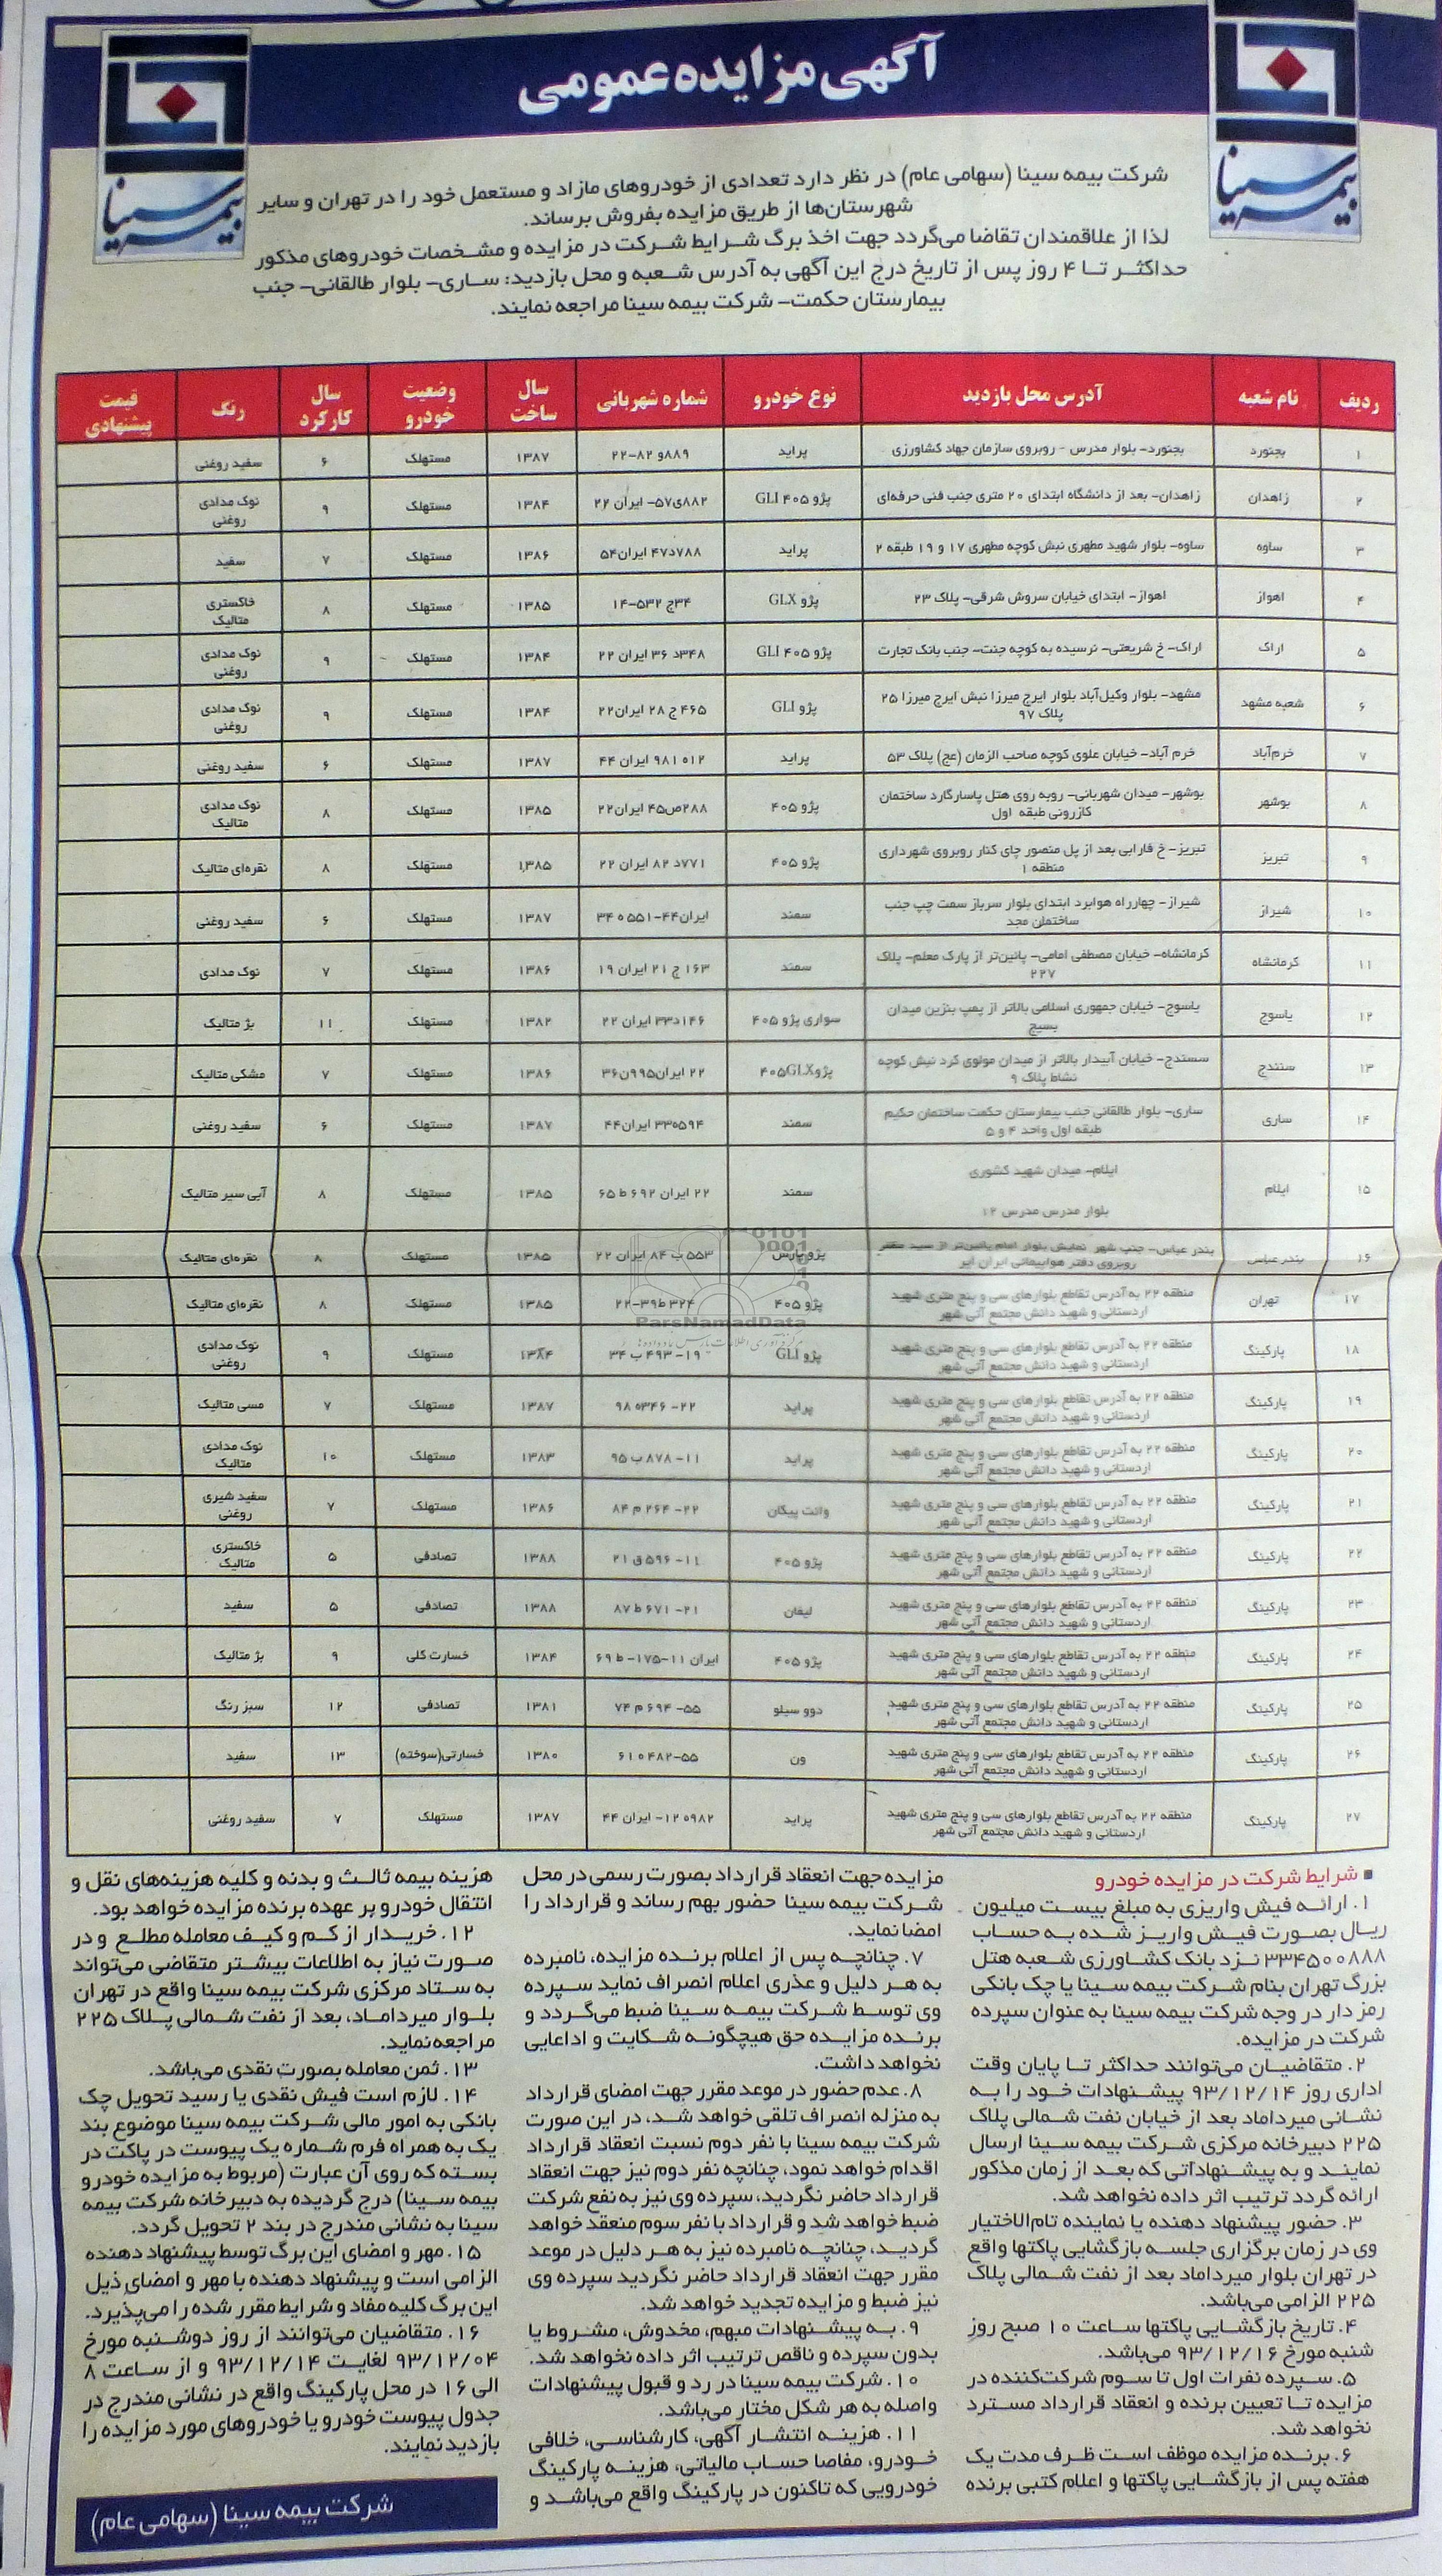 آگهی مزایده عمومی
بیمه سینا
بیمه سینا
شرکت بیمه سینا (سهامی عام) در نظر دارد تعدادی از خودروهای مازاد و مستعمل خود را در تهران و سایر
شهرستان‌ها از طریق مزایده بفروش برساند.
لذا از علاقمندان تقاضا می‌گردد جهت اخذ برگ شرایط شرکت در مزایده و مشخصات خودروهای مذکور
حداکثر تا ۴ روز پس از تاریخ درج این آگهی به آدرس شعبه و محل بازدید: ساری- بلوار طالقانی- جنب
بیمارستان حکمت- شرکت بیمه سینا مراجعه نمایند.
ردیف نام شعبه آدرس محل بازدید نوع خودرو شماره شهربانی سال ساخت وضعیت خودرو سال کارکرد رنگ قیمت پیشنهادی
۱ بجنورد بجنورد- بلوار مدرس - روبروی سازمان جهاد کشاورزی پراید ۸۸۹و ۸۲-۲۲ ۱۳۸۷ مستهلک ۶ سفید روغنی
۲ زاهدان زاهدان- بعد از دانشگاه ابتدای ۲۰ متری جنب فنی حرفه‌ای پژو ۴۰۵ GLI ۸۸۲ی۵۷- ایران ۲۲ ۱۳۸۴ مستهلک ۹ نوک مدادی روغنی
۳ ساوه ساوه- بلوار شهید مطهری نبش کوچه مطهری ۱۷ و ۱۹ طبقه ۲ پراید ۷۸۸د۴۷ ایران۵۴ ۱۳۸۶ مستهلک ۷ سفید
۴ اهواز اهواز- ابتدای خیابان سروش شرقی- پلاک ۲۳ پژو GLX ۳۴ج ۵۳۲-۱۴ ۱۳۸۵ مستهلک ۸ خاکستری متالیک
۵ اراک اراک- خ شریعتی- نرسیده به کوچه جنت- جنب بانک تجارت پژو ۴۰۵ GLI ۳۴۸د ۳۶ ایران ۲۲ ۱۳۸۴ مستهلک ۹ نوک مدادی روغنی
۶ شعبه مشهد مشهد- بلوار وکیل‌آباد بلوار ایرج میرزا نبش ایرج میرزا ۲۵ پلاک ۹۷ پژو GLI ۴۶۵ ج ۲۸ ایران۲۲ ۱۳۸۴ مستهلک ۹ نوک مدادی روغنی
۷ خرم‌آباد خرم آباد- خیابان علوی کوچه صاحب الزمان (عج) پلاک ۵۳ پراید ۹۸۱۰۱۲ ایران ۴۴ ۱۳۸۷ مستهلک ۶ سفید روغنی
۸ بوشهر بوشهر- میدان شهربانی- روبه روی هتل پاسارگارد ساختمان کازرونی طبقه اول پژو ۴۰۵ ۲۸۸ص۴۵ ایران۲۲ ۱۳۸۵ مستهلک ۸ نوک مدادی متالیک
۹ تبریز تبریز- خ فارابی بعد از پل منصور چای کنار روبروی شهرداری منطقه ۱ پژو ۴۰۵ ۷۷۱د ۸۲ ایران ۲۲ ۱۳۸۵ مستهلک ۸ نقره‌ای متالیک
۱۰ شیراز شیراز- چهارراه هوابرد ابتدای بلوار سرباز سمت چپ جنب ساختمان مجد سمند ایران۴۴-۵۵۱ ۳۴ ۱۳۸۷ مستهلک ۶ سفید روغنی
۱۱ کرمانشاه کرمانشاه- خیابان مصطفی امامی- پائین‌تر از پارک معلم- پلاک ۲۲۷ سمند ۱۶۳ ج ۲۱ ایران ۱۹ ۱۳۸۶ مستهلک ۷ نوک مدادی
۱۲ یاسوج یاسوج- خیابان جمهوری اسلامی بالاتر از پمپ بنزین میدان بسیج سواری پژو ۴۰۵ ۱۴۶د۳۳ ایران ۲۲ ۱۳۸۲ مستهلک ۱۱ بژ متالیک
۱۳ سنندج سسندج- خیابان آبیدار بالاتر از میدان مولوی کرد نبش کوچه نشاط پلاک ۹ پژو۴۰۵GLX ۲۲ ایران۹۹۵ن۳۶ ۱۳۸۶ مستهلک ۷ مشکی متالیک
۱۴ ساری ساری- بلوار طالقانی جنب بیمارستان حکمت ساختمان حکیم طبقه اول واحد ۴ و ۵ سمند ۵۹۴ه۳۳ ایران۴۴ ۱۳۸۷ مستهلک ۶ سفید روغنی
۱۵ ایلام ایلام- میدان شهید کشوری بلوار مدرس مدرس ۱۲ سمند ۲۲ ایران ۶۹۲ ط ۶۵ ۱۳۸۵ مستهلک ۸ آبی سیر متالیک
۱۶ بندر عباس بندر عباس- جنب شهر نمایش بلوار امام پائین‌تر از روبروی دفتر هواپیمائی ایران ایر پژو پارس ۵۵۳ ب ۸۴ ایران ۲۲ ۱۳۸۵ مستهلک ۸ نقره‌ای متالیک
۱۷ تهران منطقه ۲۲ به آدرس تقاطع بلوارهای سی و پنج متری شهید اردستانی و شهید دانش مجتمع آتی شهر پژو ۴۰۵ ۳۲۴ ط۳۹-۲۲ ۱۳۸۵ مستهلک ۸ نقره‌ای متالیک
۱۸ پارکینگ منطقه ۲۲ به آدرس تقاطع بلوارهای سی و پنج متری شهید اردستانی و شهید دانش مجتمع آتی شهر پژو GLI ۱۹- ۴۹۳ ب ۳۴ ۱۳۸۴ مستهلک ۹ نوک مدادی روغنی
۱۹ پارکینگ منطقه ۲۲ به آدرس تقاطع بلوارهای سی و پنج متری شهید اردستانی و شهید دانش مجتمع آتی شهر پراید ۲۲- ۳۴۶ه ۹۸ ۱۳۸۷ مستهلک ۷ مسی متالیک
۲۰ پارکینگ منطقه ۲۲ به آدرس تقاطع بلوارهای سی و پنج متری شهید اردستانی و شهید دانش مجتمع آتی شهر پراید ۱۱- ۸۷۸ ب ۹۵ ۱۳۸۳ مستهلک ۱۰ نوک مدادی متالیک
۲۱ پارکینگ منطقه ۲۲ به آدرس تقاطع بلوارهای سی و پنج متری شهید اردستانی و شهید دانش مجتمع آتی شهر وانت پیکان ۲۲- ۲۶۴ م ۸۴ ۱۳۸۶ مستهلک ۷ سفید شیری روغنی
۲۲ پارکینگ منطقه ۲۲ به آدرس تقاطع بلوارهای سی و پنج متری شهید اردستانی و شهید دانش مجتمع آتی شهر پژو ۴۰۵ ۱۱- ۵۹۶ ق ۲۱ ۱۳۸۸ تصادفی ۵ خاکستری متالیک
۲۳ پارکینگ منطقه ۲۲ به آدرس تقاطع بلوارهای سی و پنج متری شهید اردستانی و شهید دانش مجتمع آتی شهر لیفان ۲۱- ۶۷۱ ط ۸۷ ۱۳۸۸ تصادفی ۵ سفید
۲۴ پارکینگ منطقه ۲۲ به آدرس تقاطع بلوارهای سی و پنج متری شهید اردستانی و شهید دانش مجتمع آتی شهر پژو ۴۰۵ ایران ۱۱-۱۷۵- ط ۶۹ ۱۳۸۴ خسارت کلی ۹ بژ متالیک
۲۵ پارکینگ منطقه ۲۲ به آدرس تقاطع بلوارهای سی و پنج متری شهید اردستانی و شهید دانش مجتمع آتی شهر دوو سیلو ۵۵- ۶۹۴ م ۷۴ ۱۳۸۱ تصادفی ۱۲ سبز رنگ
۲۶ پارکینگ منطقه ۲۲ به آدرس تقاطع بلوارهای سی و پنج متری شهید اردستانی و شهید دانش مجتمع آتی شهر ون ۵۵-۴۸۲ ه ۶۱ ۱۳۸۰ خسارتی(سوخته) ۱۳ سفید
۲۷ پارکینگ منطقه ۲۲ به آدرس تقاطع بلوارهای سی و پنج متری شهید اردستانی و شهید دانش مجتمع آتی شهر پراید ۹۸۲ه ۱۲- ایران ۴۴ ۱۳۸۷ مستهلک ۷ سفید روغنی
ParsNamadData
■ شرایط شرکت در مزایده خودرو
۱. ارائه فیش واریزی به مبلغ بیست میلیون
ریال بصورت فیش واریز شده به حساب
۳۳۴۵۰۰۸۸۸ نزد بانک کشاورزی شعبه هتل
بزرگ تهران بنام شرکت بیمه سینا یا چک بانکی
رمز دار در وجه شرکت بیمه سینا به عنوان سپرده
شرکت در مزایده.
۲. متقاضیان می‌توانند حداکثر تا پایان وقت
اداری روز ۹۳/۱۲/۱۴ پیشنهادات خود را به
نشانی میرداماد بعد از خیابان نفت شمالی پلاک
۲۲۵ دبیرخانه مرکزی شرکت بیمه سینا ارسال
نمایند و به پیشنهاداتی که بعد از زمان مذکور
ارائه گردد ترتیب اثر داده نخواهد شد.
۳. حضور پیشنهاد دهنده یا نماینده تام‌الاختیار
وی در زمان برگزاری جلسه بازگشایی پاکتها واقع
در تهران بلوار میرداماد بعد از نفت شمالی پلاک
۲۲۵ الزامی می‌باشد.
۴. تاریخ بازگشایی پاکتها ساعت ۱۰ صبح روز
شنبه مورخ ۹۳/۱۲/۱۶ می‌باشد.
۵. سپرده نفرات اول تا سوم شرکت‌کننده در
مزایده تا تعیین برنده و انعقاد قرارداد مسترد
نخواهد شد.
۶. برنده مزایده موظف است ظرف مدت یک
هفته پس از بازگشایی پاکتها و اعلام کتبی برنده
مزایده جهت انعقاد قرارداد بصورت رسمی در محل
شرکت بیمه سینا حضور بهم رساند و قرارداد را
امضا نماید.
۷. چنانچه پس از اعلام برنده مزایده، نامبرده
به هر دلیل و عذری اعلام انصراف نماید سپرده
وی توسط شرکت بیمه سینا ضبط می‌گردد و
برنده مزایده حق هیچگونه شکایت و اداعایی
نخواهد داشت.
۸. عدم حضور در موعد مقرر جهت امضای قرارداد
به منزله انصراف تلقی خواهد شد، در این صورت
شرکت بیمه سینا با نفر دوم نسبت انعقاد قرارداد
اقدام خواهد نمود، چنانچه نفر دوم نیز جهت انعقاد
قرارداد حاضر نگردید، سپرده وی نیز به نفع شرکت
ضبط خواهد شد و قرارداد با نفر سوم منعقد خواهد
گردید، چنانچه نامبرده نیز به هر دلیل در موعد
مقرر جهت انعقاد قرارداد حاضر نگردید سپرده وی
نیز ضبط و مزایده تجدید خواهد شد.
۹. به پیشنهادات مبهم، مخدوش، مشروط یا
بدون سپرده و ناقص ترتیب اثر داده نخواهد شد.
۱۰. شرکت بیمه سینا در رد و قبول پیشنهادات
واصله به هر شکل مختار می‌باشد.
۱۱. هزینه انتشار آگهی، کارشناسی، خلافی
خودرو، مفاصا حساب مالیاتی، هزینه پارکینگ
خودرویی که تاکنون در پارکینگ واقع می‌باشد و
هزینه بیمه ثالث و بدنه و کلیه هزینه‌های نقل و
انتقال خودرو بر عهده برنده مزایده خواهد بود.
۱۲. خریدار از کم و کیف معامله مطلع و در
صورت نیاز به اطلاعات بیشتر متقاضی می‌تواند
به ستاد مرکزی شرکت بیمه سینا واقع در تهران
بلوار میرداماد، بعد از نفت شمالی پلاک ۲۲۵
مراجعه نماید.
۱۳. ثمن معامله بصورت نقدی می‌باشد.
۱۴. لازم است فیش نقدی یا رسید تحویل چک
بانکی به امور مالی شرکت بیمه سینا موضوع بند
یک به همراه فرم شماره یک پیوست در پاکت در
بسته که روی آن عبارت (مربوط به مزایده خودرو
بیمه سینا) درج گردیده به دبیرخانه شرکت بیمه
سینا به نشانی مندرج در بند ۲ تحویل گردد.
۱۵. مهر و امضای این برگ توسط پیشنهاد دهنده
الزامی است و پیشنهاد دهنده با مهر و امضای ذیل
این برگ کلیه مفاد و شرایط مقرر شده را می‌پذیرد.
۱۶. متقاضیان می‌توانند از روز دوشنبه مورخ
۹۳/۱۲/۰۴ لغایت ۹۳/۱۲/۱۴ و از ساعت ۸
الی ۱۶ در محل پارکینگ واقع در نشانی مندرج در
جدول پیوست خودرو یا خودروهای مورد مزایده را
بازدید نمایند.
شرکت بیمه سینا (سهامی عام)